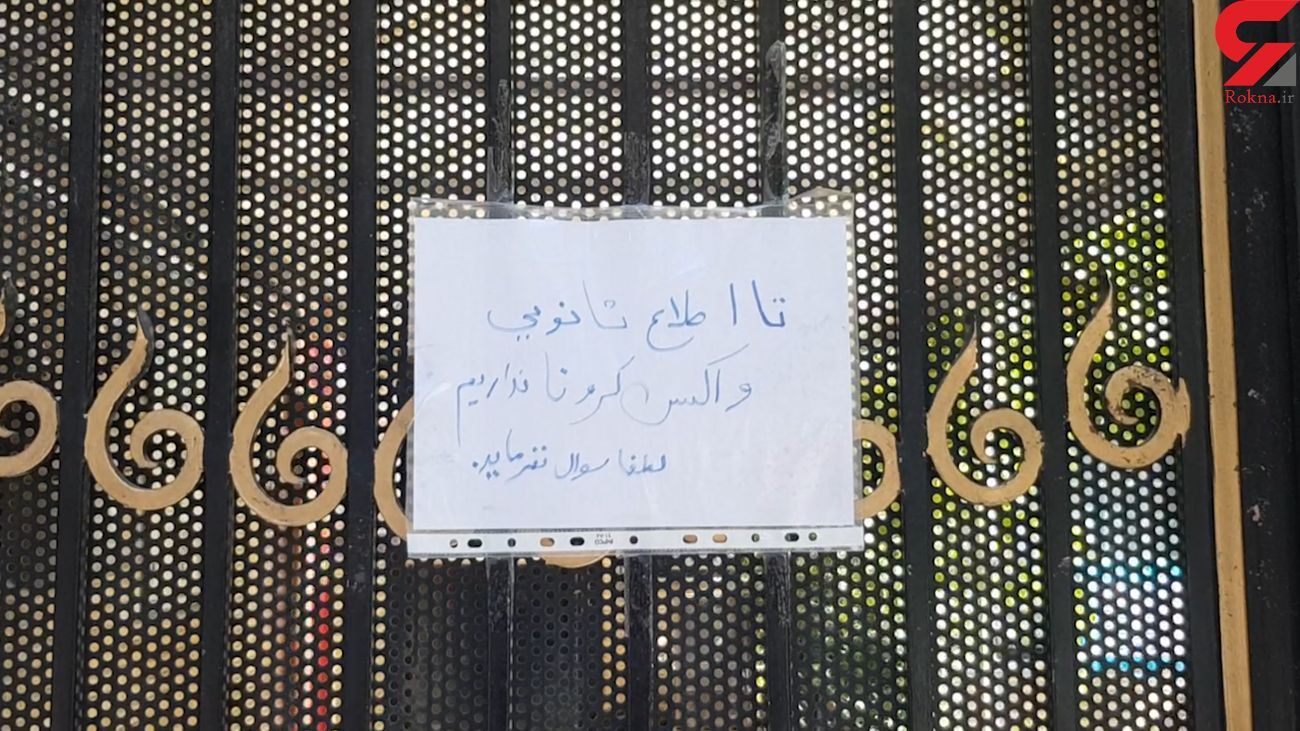 Rokna.ir
تا اطلاع ثانوی
واکسن کرونا نداریم
لطفا سوال نفرماید.